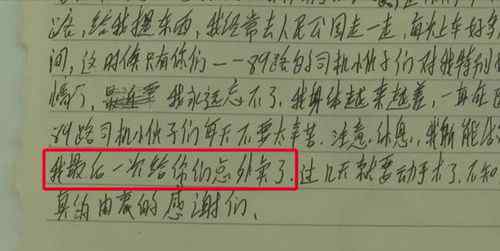 语，给我提东西，我经常去人民公园走一走，每次上车好多
间，这时候只有你们——89路的司机小伙子们对我特别
我永远忘不了，我身体越来越差，一直在
89路司机小伙子们每天不要太辛苦，注意休息，我所能给
我最后一次给你们点外卖了．过几天就要动手术了．不知
真的由衷的感谢们、